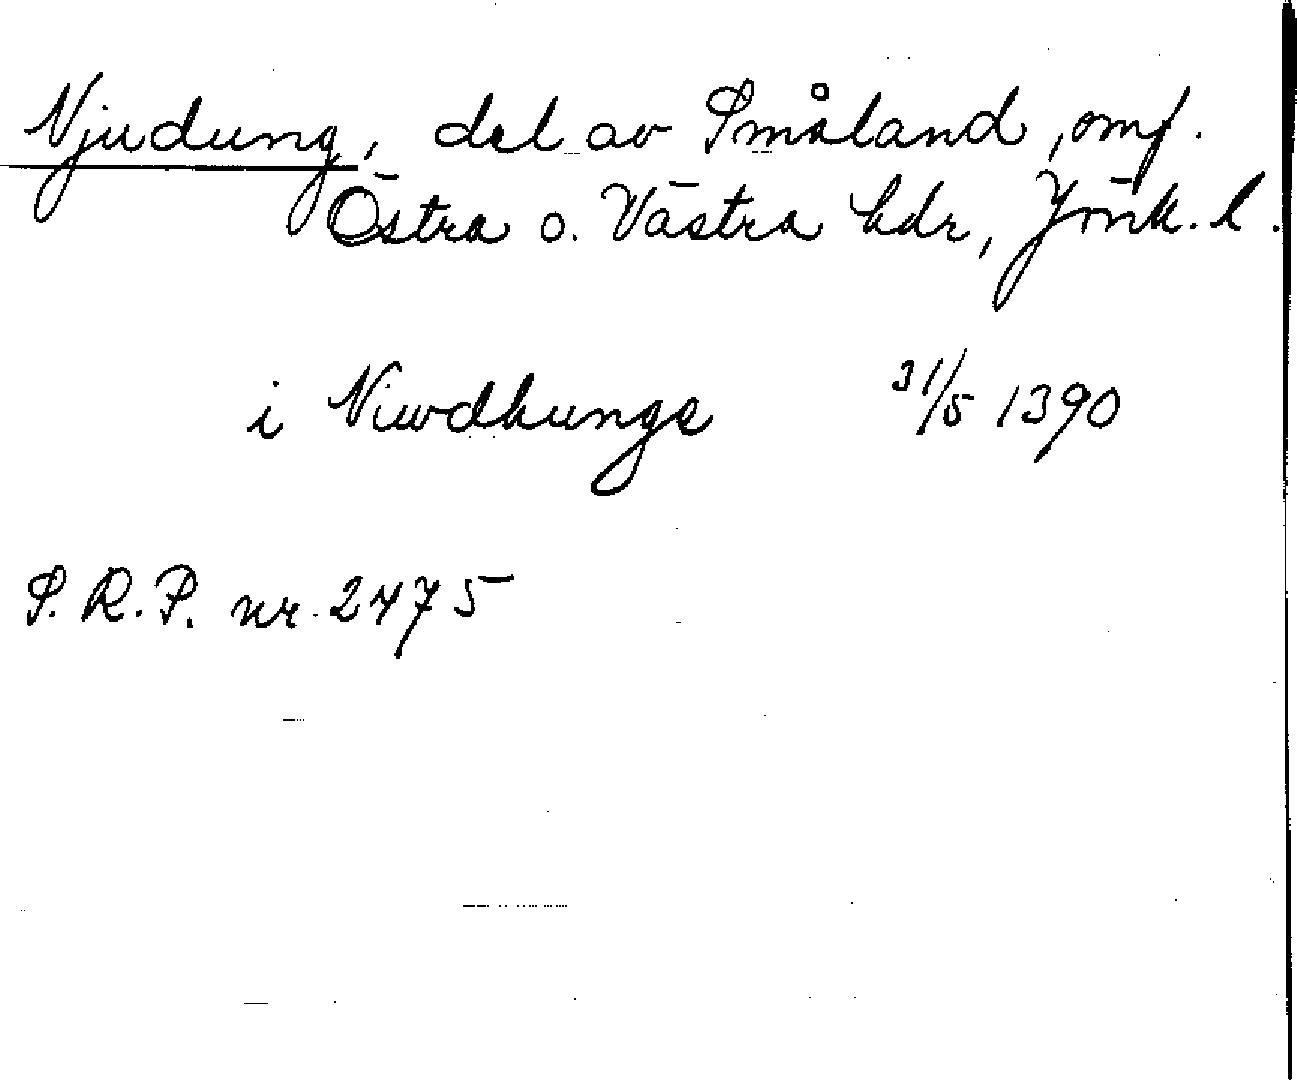 Njudung, del av Småland, omf.
Östra o. Västra hdr, Jönk. l.
i Niwdhunge 31/5 1390
S.R.P. nr. 2475